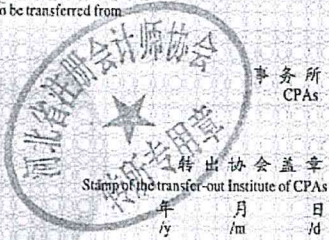 o be transferred from
事务所
CPAs
河北省注册会计师协会
转所专用章
转出协会盖章
Stamp of the transfer-out Institute of CPAs
年 月 日
/y /m /d